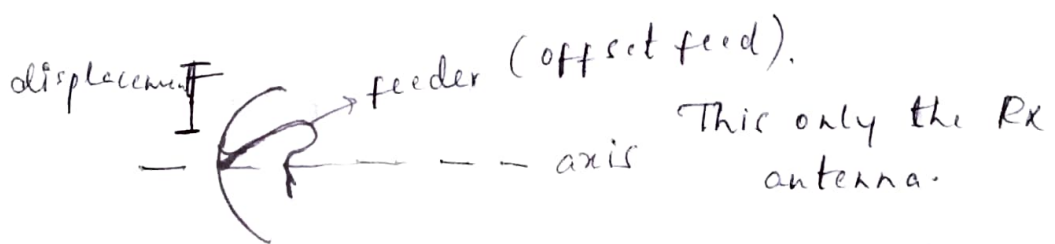 displacement
feeder (offset feed).
This only the Rx
antenna.
axis